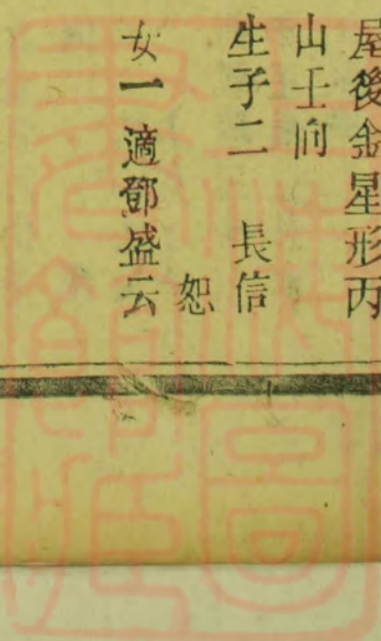 屋後金星形丙
山壬向
生子二　長信
恕
女一 適鄧盛云